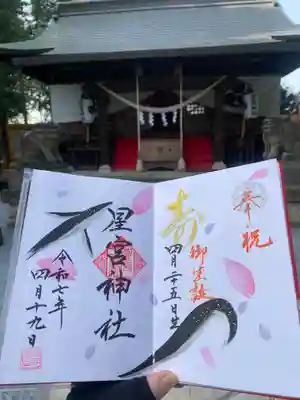 奉祝
寿
御生誕
四月二十五日生
星宮神社
令和七年
四月十九日